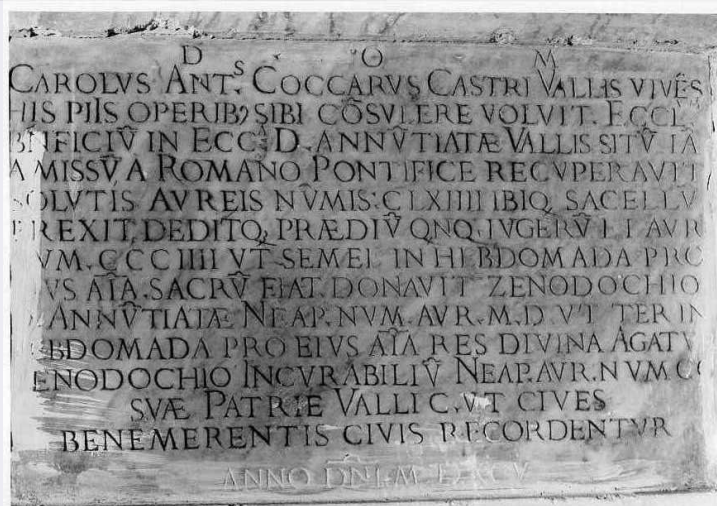 D O M
CAROLVS ANT.S COCCARVS CASTRI VALLIS VIVẼS
HIS PIIS OPERIBꝰ SIBI CÕSVLERE VOLVIT. ECCL
BNFICIṼ IN ECC D. ANNṼTIATÆ VALLIS SITṼ IÃ
AMISSṼ A ROMANO PONTIFICE RECVPERAVIT
SOLVTIS AVREIS NṼMIS. CLXIIII IBIQ. SACELLṼ
EREXIT, DEDITQ, PRÆDIṼ QNQ. IVGERṼ AVR
VM. CCCIIII VT SEMEL IN HEBDOMADA PRO
VS AĨA. SACRṼ FIAT DONAVIT ZENODOCHIO
ANNṼTIATÆ NEAP. NVM. AVR. M. D VT TER IN
EBDOMADA PRO EIVS AĨA RES DIVINA AGATV
ENODOCHIO INCVRABILIṼ NEAP. AVR. NVM
SVÆ PATRIE VALLI C. VT CIVES
BENEMERENTIS CIVIS RECORDENTVR
ANNO DÑI. M